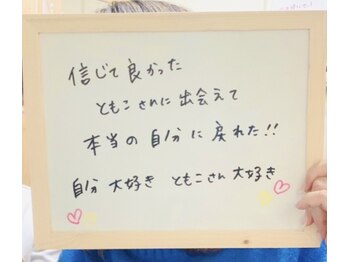 信じて良かった
ともこさんに出会えて
本当の自分に戻れた!!
自分大好き ともこさん大好き